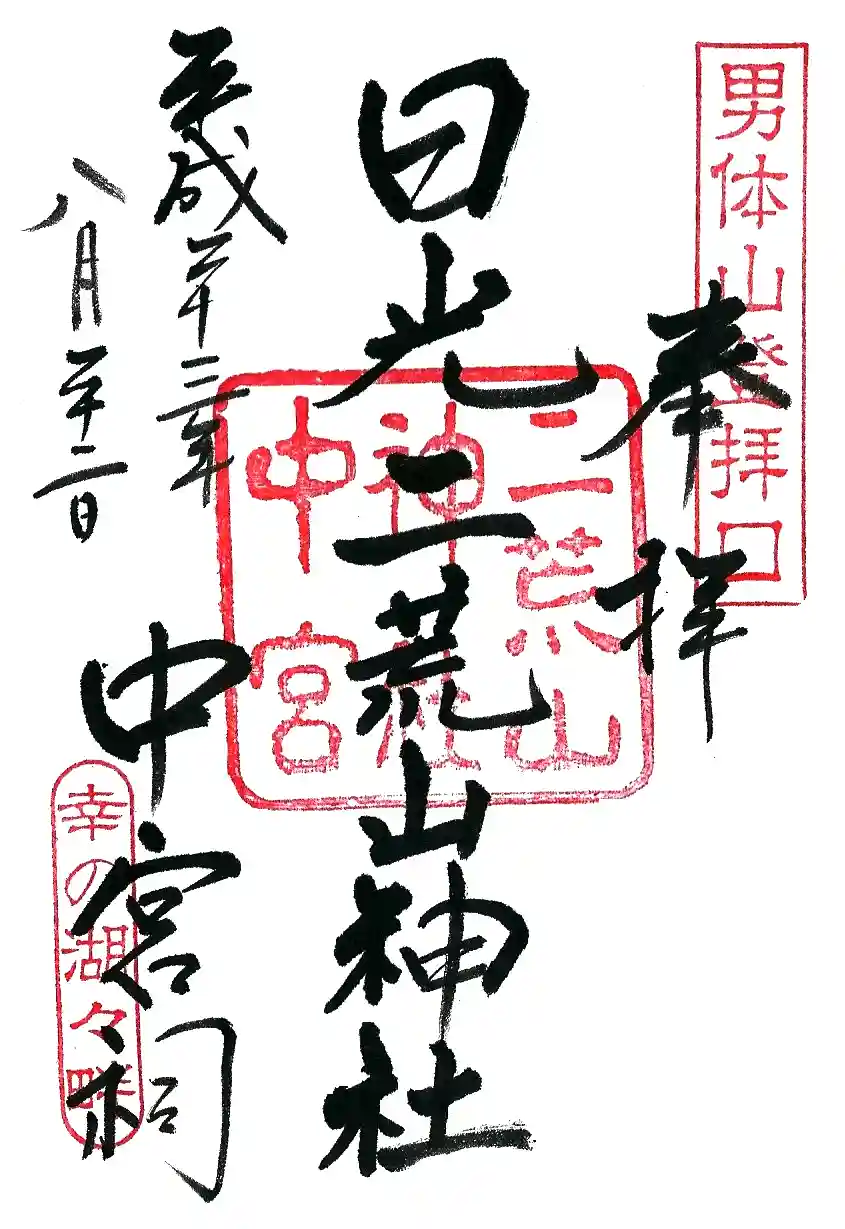 男体山登拝口
奉拝
日光二荒山神社
二荒山
神社
中宮
中宮祠
平成二十三年
八月二十二日
幸の湖々畔